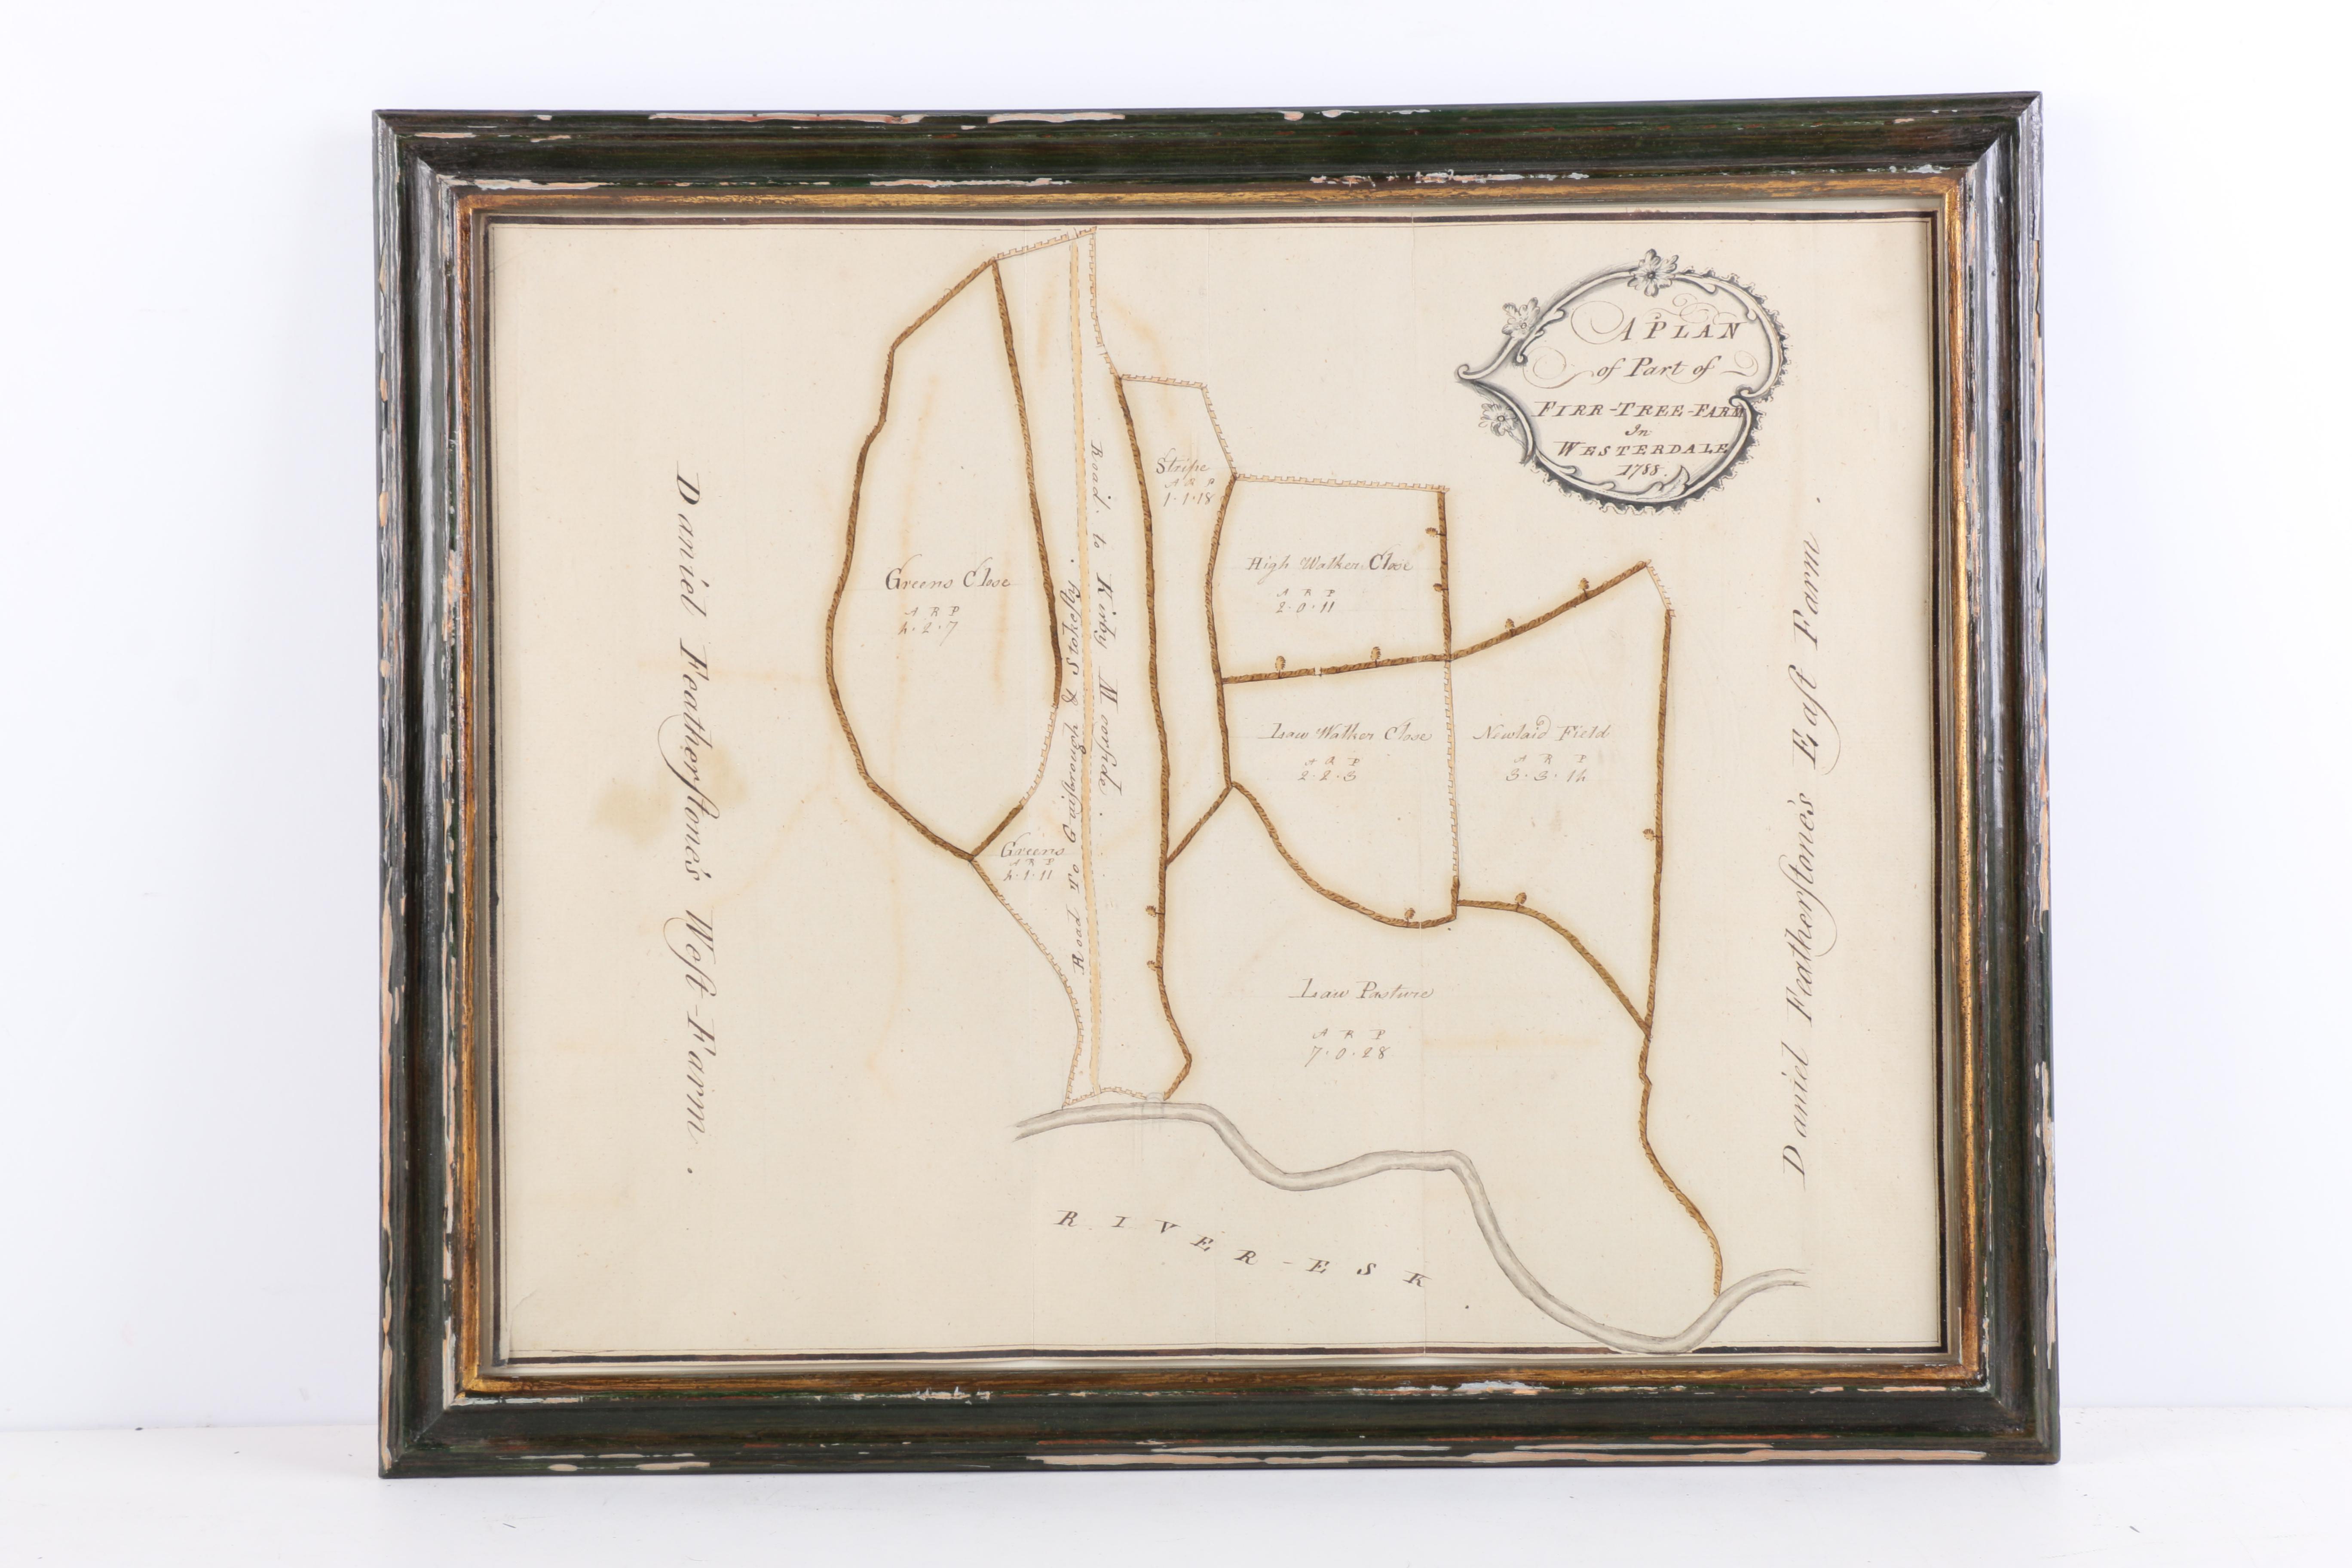 A PLAN
of Part of
FIRR-TREE-FARM
In
WESTERDALE
1788.
Daniel Featherſtone's Weſt-Farm.
Greens Close
A R P
4.2.7
Greens
A R P
4.1.11
Road To Guiſbrough & Stokeſly.
Road. to Kirby Moorſide.
Stripe
A R P
1.1.18
High Walker Close
A R P
2.0.11
Law Walker Close
A R P
2.2.3
Newlaid Field
A R P
3.3.14
Law Pasture
A R P
7.0.28
RIVER-ESK
Daniel Featherſtone's Eaſt Farm.